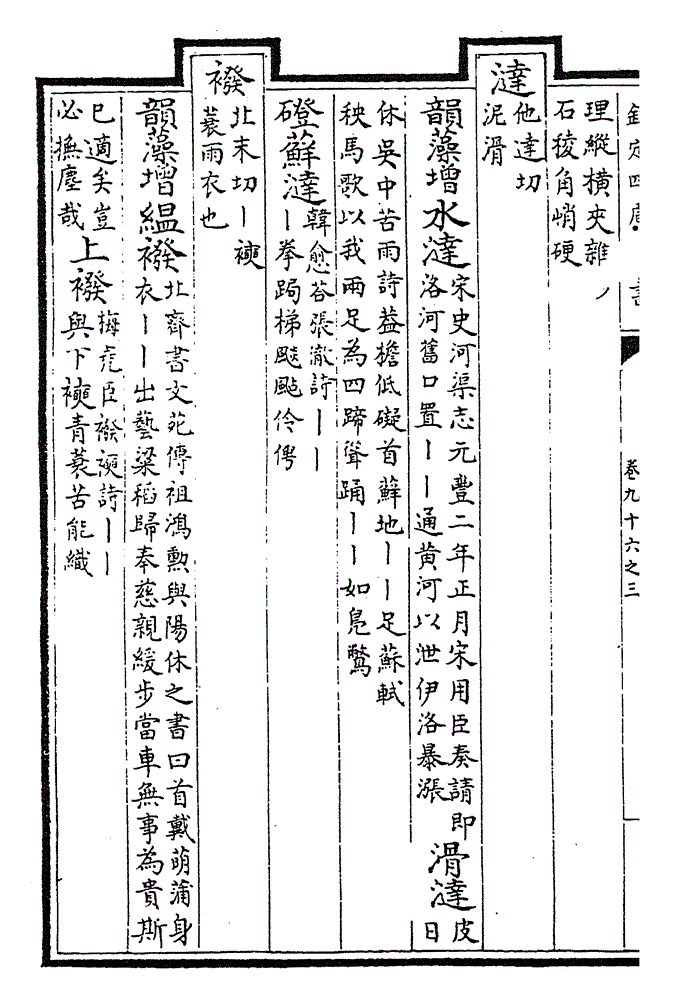 欽定四庫
卷九十六之三
理縱橫夾雜
石稜角峭硬
澾
他達切
泥滑
韻藻增水澾
宋史河渠志元豐二年正月宋用臣奏請即
洛河舊口置丨丨通黄河以泄伊洛暴漲
滑澾
皮
日
休吳中苦雨詩蓋檐低礙首蘚地丨丨足蘇軾
秧馬歌以我兩足為四蹄聳踊丨丨如鳧鷖
磴蘚澾
韓愈答張徹詩丨丨
丨拳跼梯飈颭伶俜
襏
北末切丨襫
蓑雨衣也
韻藻增緼襏
北齊書文苑傳祖鴻勲與陽休之書曰首戴萌蒲身
衣丨丨出藝粱稻歸奉慈親緩步當車無事為貴斯
已適矣豈
必撫塵哉
上襏
梅堯臣襏襫詩丨丨
與下襫青蓑苦能織